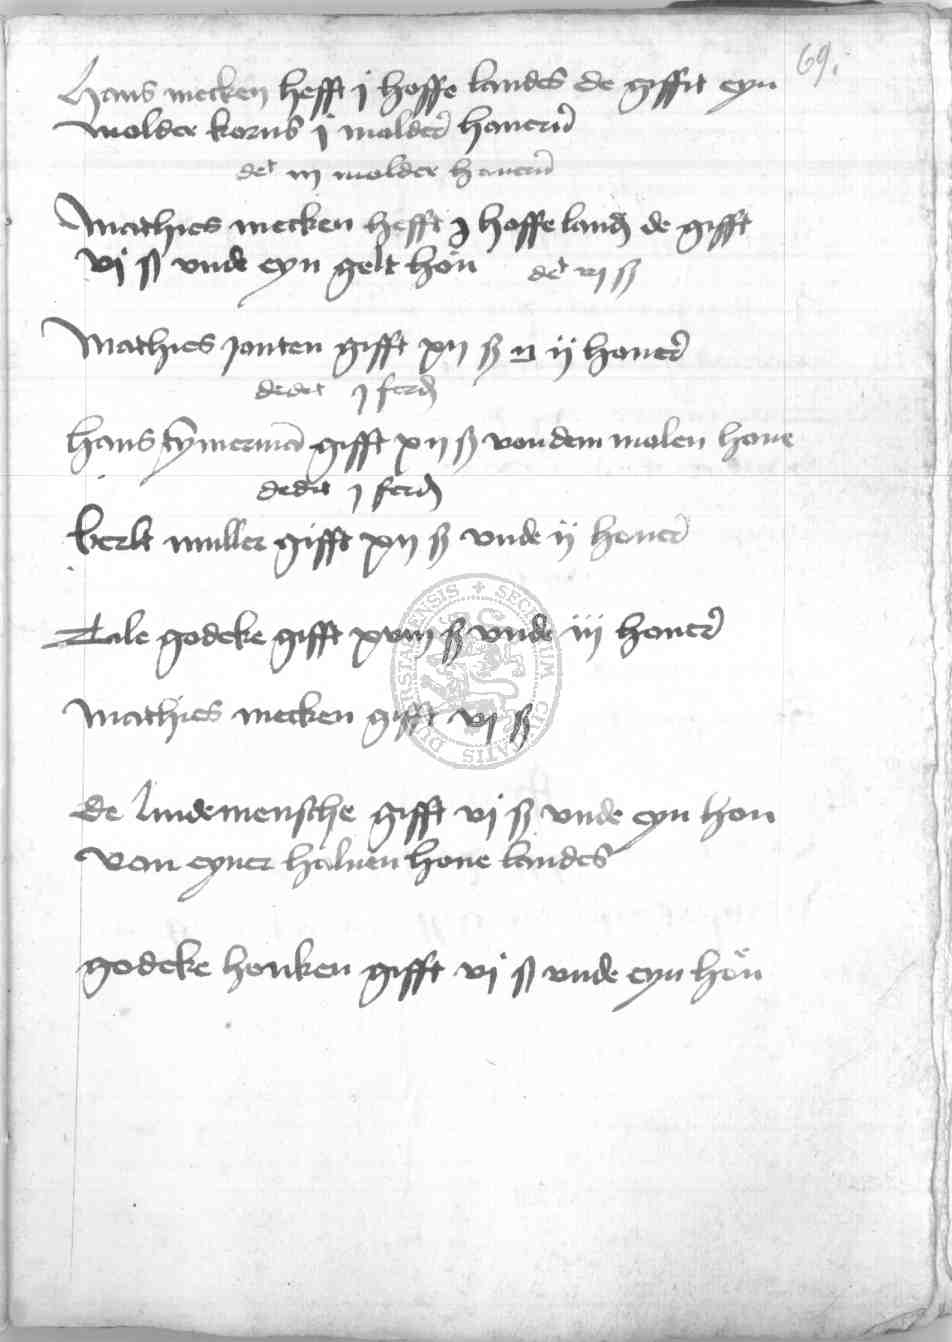 69.
Hans mecken hefft j hoffe landes de gifft eyn
molder korns j molder hauern
det iij molder hauern
Mathies mecken hefft j hoffe land de gifft
vj ß vnde eyn gelt hon det vj ß
Mathies janten gifft xij ß ij honer
dedit j ferd
hans tymerman gifft xij ß von dem molen houe
dedit j ferd
berlt muller gifft xij ß vnde ij honer
Tale godeke gifft xviij ß vnde iij honer
SECRETUM CIVITATIS
Mathies mecken gifft vj ß
de lindemensche gifft vj ß vnde eyn hon
von eyner haluen houe landes
godeke honken gifft vj ß vnde eyn hon